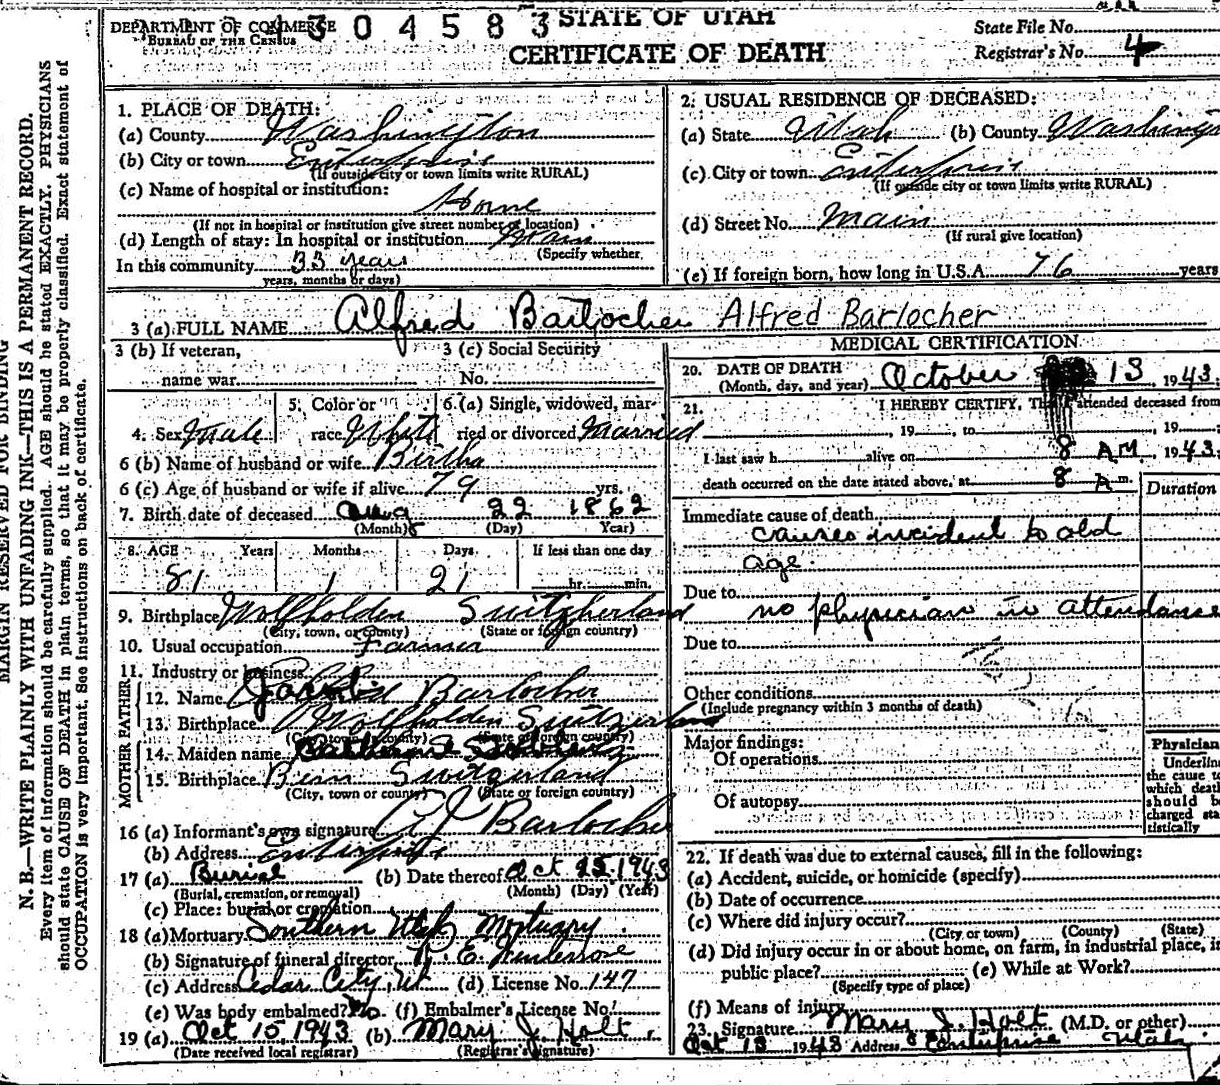 DEPARTMENT OF COMMERCE
BUREAU OF THE CENSUS
304583
STATE OF UTAH
CERTIFICATE OF DEATH
State File No.
Registrar's No. 4
MARGIN RESERVED FOR BINDING
N. B.—WRITE PLAINLY WITH UNFADING INK—THIS IS A PERMANENT RECORD.
Every item of information should be carefully supplied. AGE should be stated EXACTLY. PHYSICIANS
should state CAUSE OF DEATH in plain terms, so that it may be properly classified. Exact statement of
OCCUPATION is very important. See instructions on back of certificate.
1. PLACE OF DEATH:
(a) County Washington
(b) City or town Enterprise
(If outside city or town limits write RURAL)
(c) Name of hospital or institution:
Home
(If not in hospital or institution give street number or location)
(d) Length of stay: In hospital or institution
(Specify whether
In this community 33 years
years, months or days)
2. USUAL RESIDENCE OF DECEASED:
(a) State Utah (b) County Washing
(c) City or town Enterprise
(If outside city or town limits write RURAL)
(d) Street No. Main
(If rural give location)
(e) If foreign born, how long in U.S.A. 76 years
3 (a) FULL NAME Alfred Barlocher Alfred Barlocher
3 (b) If veteran,
name war
3 (c) Social Security
No.
4. Sex Male
5. Color or
race White
6.(a) Single, widowed, mar-
ried or divorced Married
6 (b) Name of husband or wife Birtha
6 (c) Age of husband or wife if alive 79 yrs.
7. Birth date of deceased Aug 22 1862
(Month) 8 (Day) Year)
8. AGE Years Months Days If less than one day
81 1 21 hr. min.
9. Birthplace Wolfholden Switzherland
(City, town, or county) (State or foreign country)
10. Usual occupation Farmer
11. Industry or business
FATHER
12. Name Jacob Barlocher
13. Birthplace Wolfholden Switzerland
(City, town or county) (State or foreign country)
MOTHER
14. Maiden name
15. Birthplace Bern Switzerland
(City, town or county) (State or foreign country)
16 (a) Informant's own signature Barlocher
(b) Address Enterprise
17 (a) Burial (b) Date thereof Oct 15 1943
(Burial, cremation, or removal) (Month) (Day) (Year)
(c) Place: burial or cremation
18 (a) Mortuary Southern Utah Mortuary
(b) Signature of funeral director
(c) Address Cedar City, Ut (d) License No. 147
(e) Was body embalmed? No. (f) Embalmer's License No.
19 (a) Oct 15, 1943 (b) Mary J. Holt
(Date received local registrar) (Registrar's signature)
MEDICAL CERTIFICATION
20. DATE OF DEATH
(Month, day, and year) October 13, 1943
21. I HEREBY CERTIFY, That I attended deceased from
, 19 , to , 19
I last saw h alive on 8 AM, 1943;
death occurred on the date stated above, at 8 A m.
Duration
Immediate cause of death
causes incident to old
age.
Due to no physician in attendance
Due to
Other conditions
(Include pregnancy within 3 months of death)
Major findings:
Of operations
Of autopsy
Physician
Underline
the cause to
which death
should be
charged sta
tistically
22. If death was due to external causes, fill in the following:
(a) Accident, suicide, or homicide (specify)
(b) Date of occurrence
(c) Where did injury occur?
(City or town) (County) (State)
(d) Did injury occur in or about home, on farm, in industrial place, in
public place? (e) While at Work?
(Specify type of place)
(f) Means of injury
23. Signature Mary J. Holt (M.D. or other)
Oct 13 1943 Address Enterprise Utah